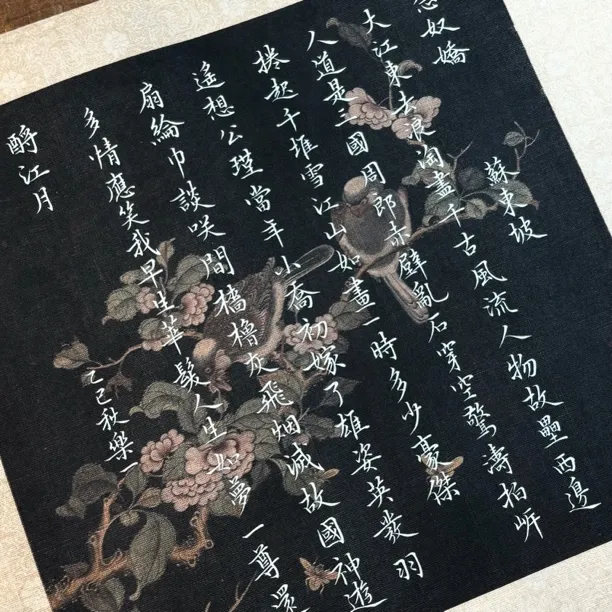 念奴嬌 蘇東坡
大江東去浪淘盡千古風流人物故壘西邊
人道是三國周郎赤壁亂石穿空驚濤拍岸
捲起千堆雪江山如畫一時多少豪傑
遙想公瑾當年小喬初嫁了雄姿英發羽
扇綸巾談咲間檣櫓灰飛烟滅故國神遊
多情應笑我早生華髮人生如夢一尊還
酹江月 乙巳秋樂一